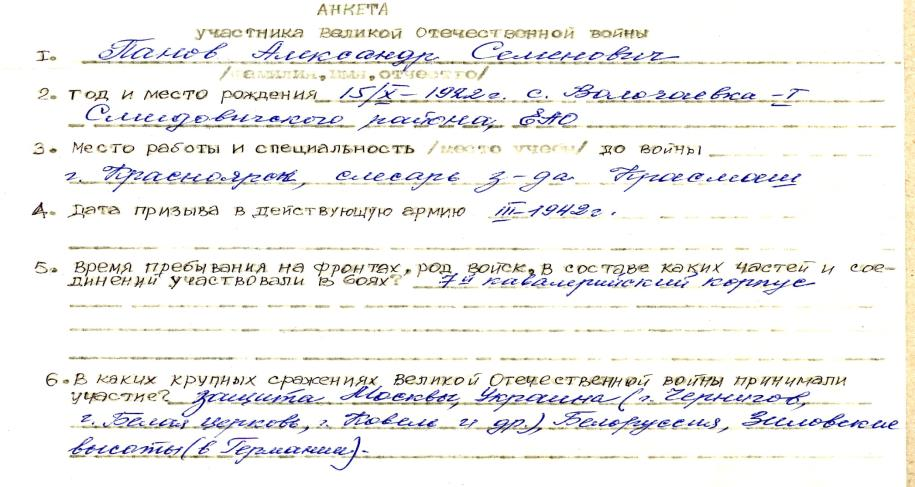 АНКЕТА
участника Великой Отечественной войны
I. Панов Александр Семенович
/фамилия, имя, отчество/
2. Год и место рождения 15/X – 1922 г. с. Волочаевка – I
Смидовичского района, ЕАО
3. Место работы и специальность /место учебы/ до войны
г. Красноярск, слесарь з-да Красмаш
4. Дата призыва в действующую армию III – 1942 г.
5. Время пребывания на фронтах, род войск, в составе каких частей и сое-
динений участвовали в боях? 7й кавалерийский корпус
6. В каких крупных сражениях Великой Отечественной войны принимали
участие? Защита Москвы, Украина (г. Чернигов,
г. Белая церковь, г. Ковель и др.), Белоруссия, Зиловские
высоты (в Германии).